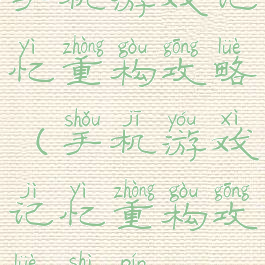 手机游戏记
yì zhòng gòu gōng lüè
忆重构攻略
shǒu jī yóu xì
（手机游戏
jì yì zhòng gòu gōng
记忆重构攻
lüè shì pín